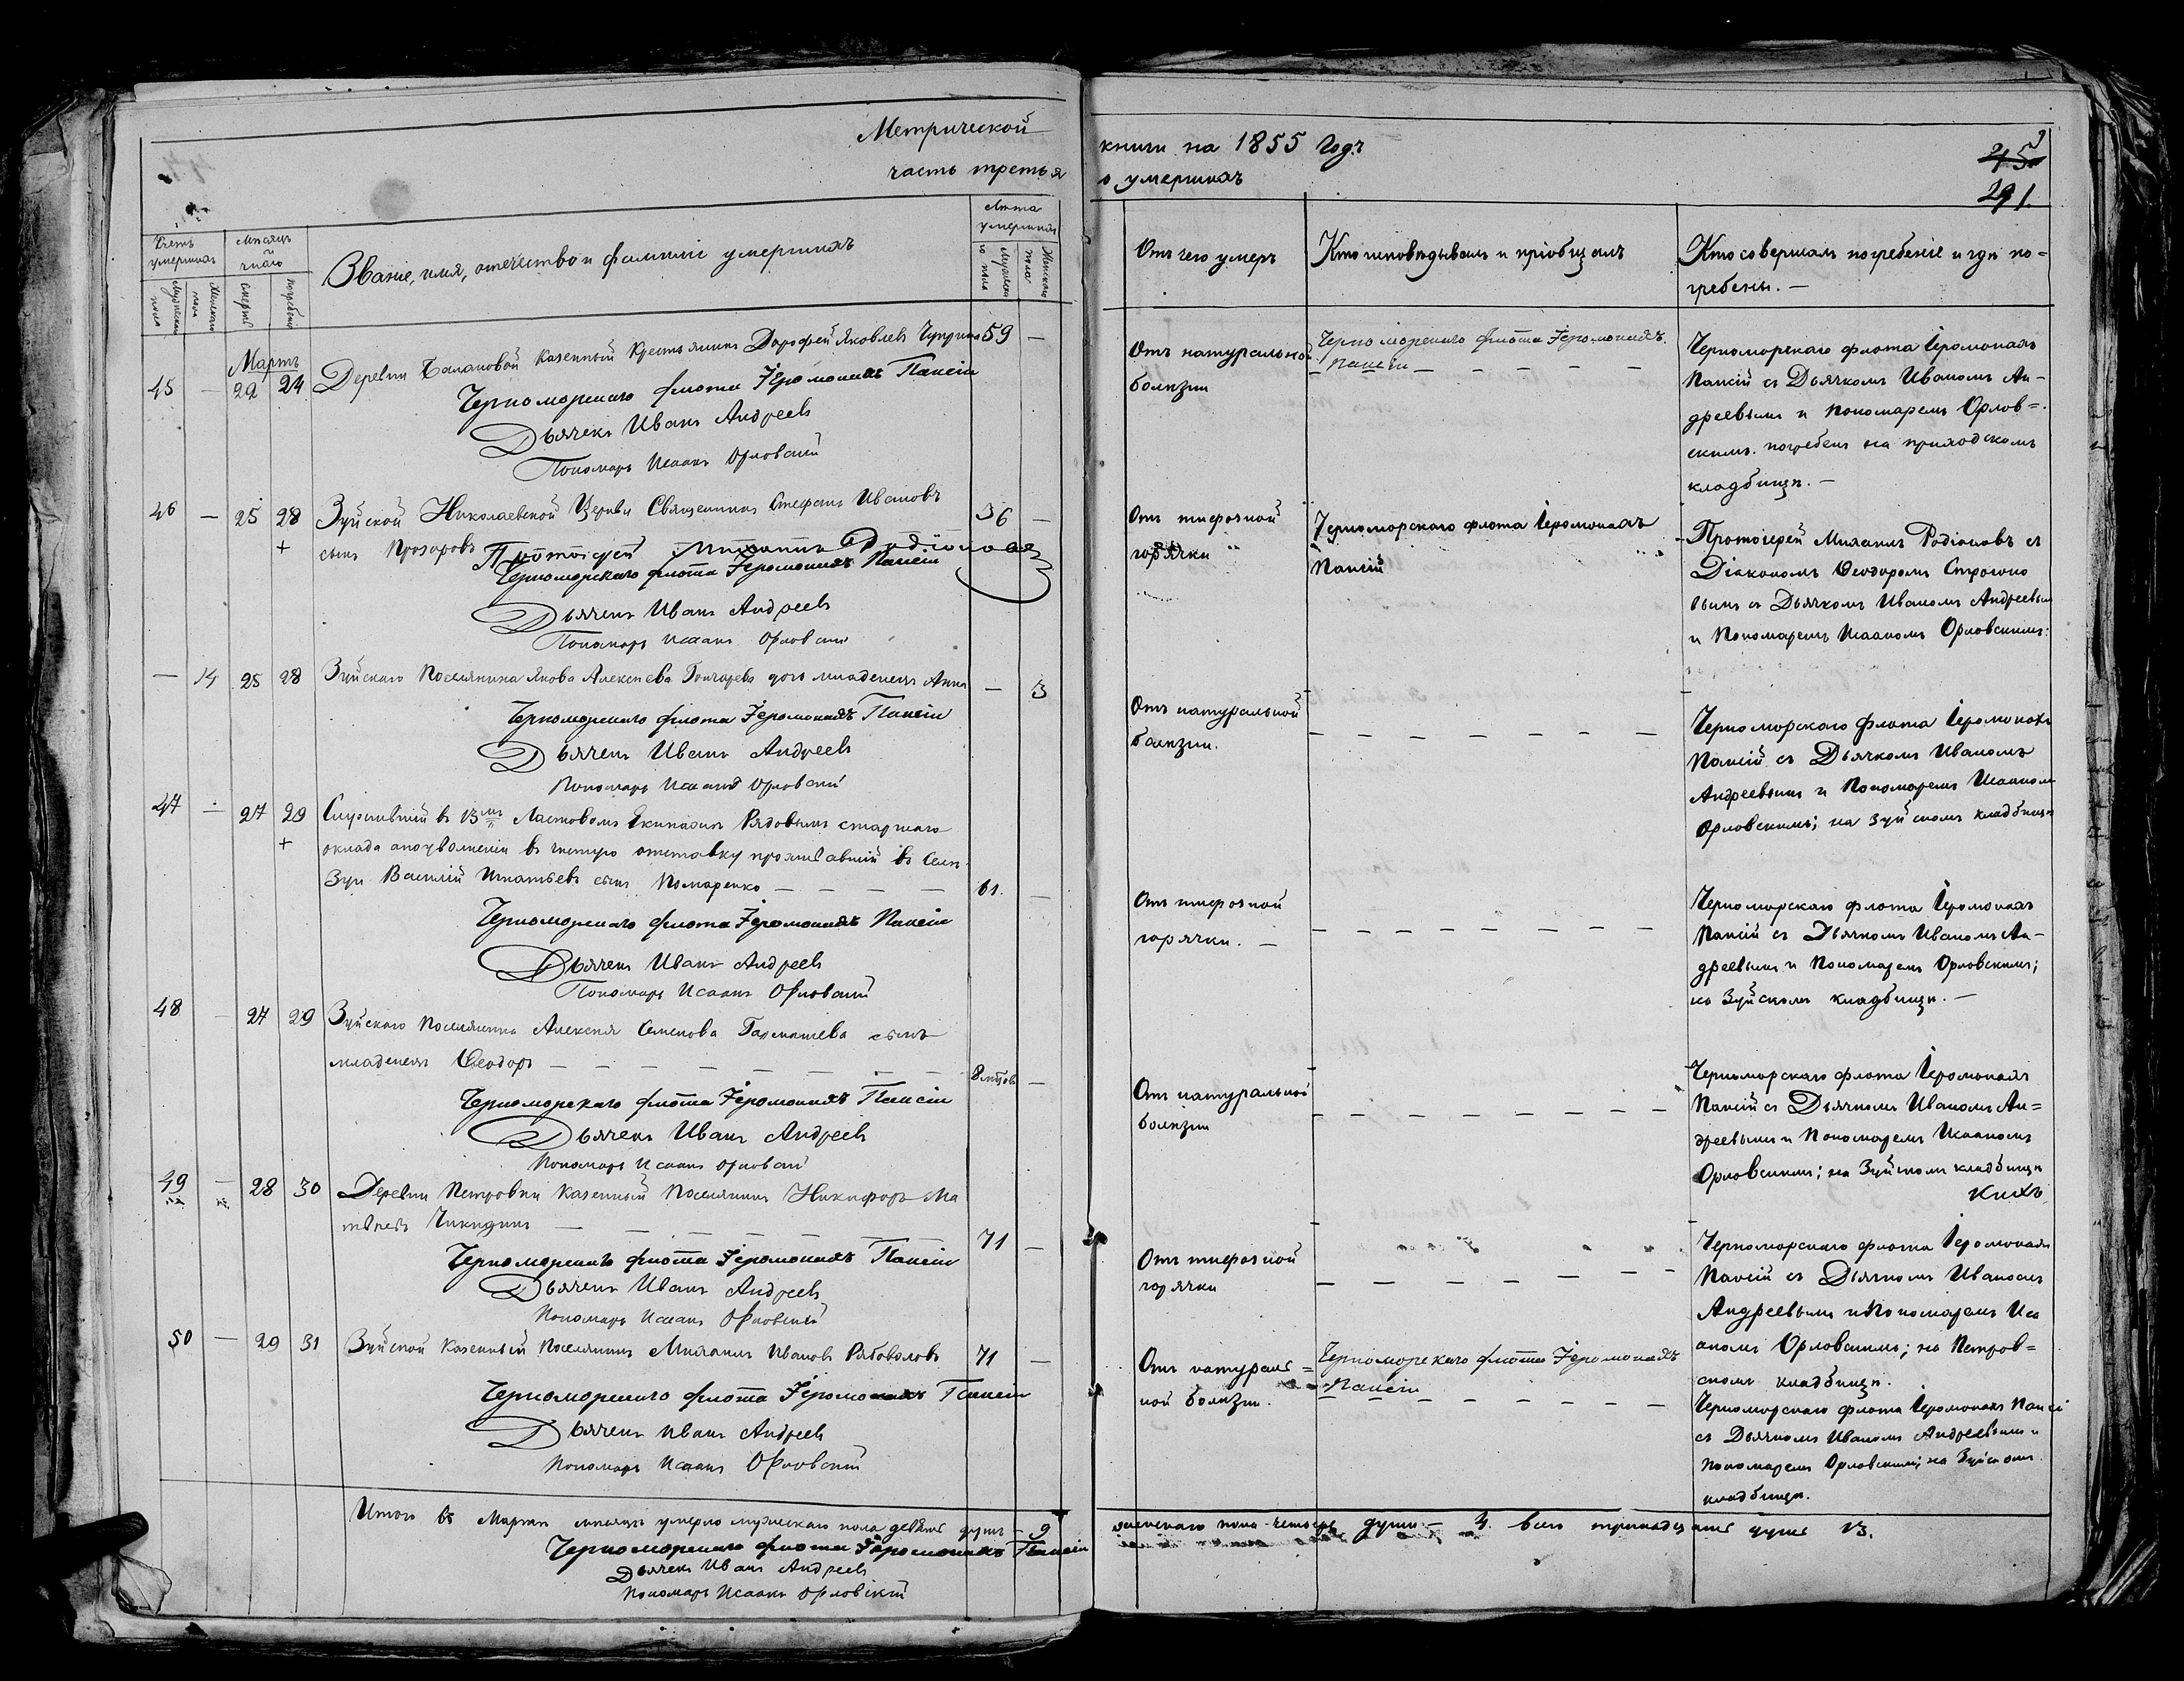 Метрической
часть третья
книги на 1855 годъ
о умершихъ
45
291.
Счетъ умершихъ
Мужескаго пола
Женскаго пола
Мѣсяцъ и число
Смерти
Погребенія
Званіе, имя, отечество и фамиліи умершихъ
Лѣта умершихъ
Мужескаго пола
Женскаго пола
Отъ чего умеръ
Кто исповѣдывалъ и пріобщалъ
Кто совершалъ погребеніе и гдѣ по-
гребены. —
Мартъ
45 — 22 24
Деревни Балановой казенный Крестьянинъ Дорофей Яковлевъ 59 —
Черноморскаго флота Іеромонахъ Паисій
Дьячекъ Иванъ Андреевъ
Пономарь Исаакъ Орловскій
Отъ натуральной
болѣзни
Черноморскаго флота Іеромонахъ
Паисій
Черноморскаго флота Іеромонахъ
Паисій съ Дьячкомъ Иваномъ Ан-
дреевымъ и Пономаремъ Орлов=
скимъ. погребенъ на приходскомъ
кладбищѣ. —
46 — 25 28 +
Зуйской Николаевской Церкви Священникъ Стефанъ Ивановъ 36 —
сынъ Прозоровъ
Протоіерей Михаилъ Родіоновъ
Черноморскаго флота Іеромонахъ Паисій
Дьячекъ Иванъ Андреевъ
Пономарь Исаакъ Орловскій
Отъ тифозной
горячки
Черноморскаго флота Іеромонахъ
Паисій
Протоіерей Михаилъ Родіоновъ съ
Діакономъ Ѳеодоромъ
съ Дьячкомъ Иваномъ Андреевым
и Пономаремъ Исаакомъ Орловскимъ.
— 14 25 28
Зуйскаго Поселянина Якова Алексѣева Гончарева дочь младенецъ Анна — 3
Черноморскаго флота Іеромонахъ Паисій
Дьячекъ Иванъ Андреевъ
Пономарь Исаакъ Орловскій
Отъ натуральной
болѣзни.
Черноморскаго флота Іеромонахъ
Паисій съ Дьячкомъ Иваномъ
Андреевымъ и Пономаремъ Исаакомъ
Орловскимъ; на Зуйскомъ кладбищѣ
47 — 27 29 +
Служившій въ 13мъ Ластовомъ Экипажѣ Рядовымъ старшаго
оклада а по уволненіи въ чистую отставку проживавшій въ Селѣ
Зуи Василій Игнатьевъ сынъ Помаренко — — — — 61. —
Черноморскаго флота Іеромонахъ Паисій
Дьячекъ Иванъ Андреевъ
Пономарь Исаакъ Орловскій
Отъ тифозной
горячки. —
Черноморскаго флота Іеромонахъ
Паисій съ Дьячкомъ Иваномъ Ан-
дреевымъ и Пономаремъ Орловскимъ;
на Зуйскомъ кладбищѣ. —
48 — 27 29
Зуйскаго Поселянина Алексѣя Семенова сынъ
младенецъ Ѳеодоръ — — — — 8 мѣсцовъ —
Черноморскаго флота Іеромонахъ Паисій
Дьячекъ Иванъ Андреевъ
Пономарь Исаакъ Орловскій
Отъ натуральной
болѣзни
Черноморскаго флота Іеромонахъ
Паисій съ Дьячкомъ Иваномъ Ан=
дреевымъ и Пономаремъ Исаакомъ
Орловскимъ; на Зуйскомъ кладбищѣ
49 — 28 30
Деревни Петровки казенный Поселянинъ Никифоръ Ма
твѣевъ Чикидинъ — — — — 71 —
Черноморскаго флота Іеромонахъ Паисій
Дьячекъ Иванъ Андреевъ
Пономарь Исаакъ Орловскій
Отъ тифозной
горячки
Черноморскаго флота Іеромонахъ
Паисій съ Дьячкомъ Иваномъ
Андреевымъ и Пономаремъ Иса
акомъ Орловскимъ; на Петров=
скомъ кладбищѣ.
50 — 29 31
Зуйской казенный Поселянинъ Михаилъ Ивановъ Рябоволовъ 71 —
Черноморскаго флота Іеромонахъ Паисій
Дьячекъ Иванъ Андреевъ
Пономарь Исаакъ Орловскій
Отъ натураль=
ной болѣзни.
Черноморскаго флота Іеромонахъ
Паисій
Черноморскаго флота Іеромонахъ Паисі
съ Дьячкомъ Иваномъ Андреевымъ и
Пономаремъ Орловскимъ; на Зуйскомъ
кладбищѣ.
Итого въ Мартѣ мѣсяцѣ умерло мужескаго пола девять душъ — 9
женскаго пола четыре души — 4. всего тринадцать душъ 13.
Черноморскаго флота Іеромонахъ Паисій
Дьячекъ Иванъ Андреевъ
Пономарь Исаакъ Орловскій